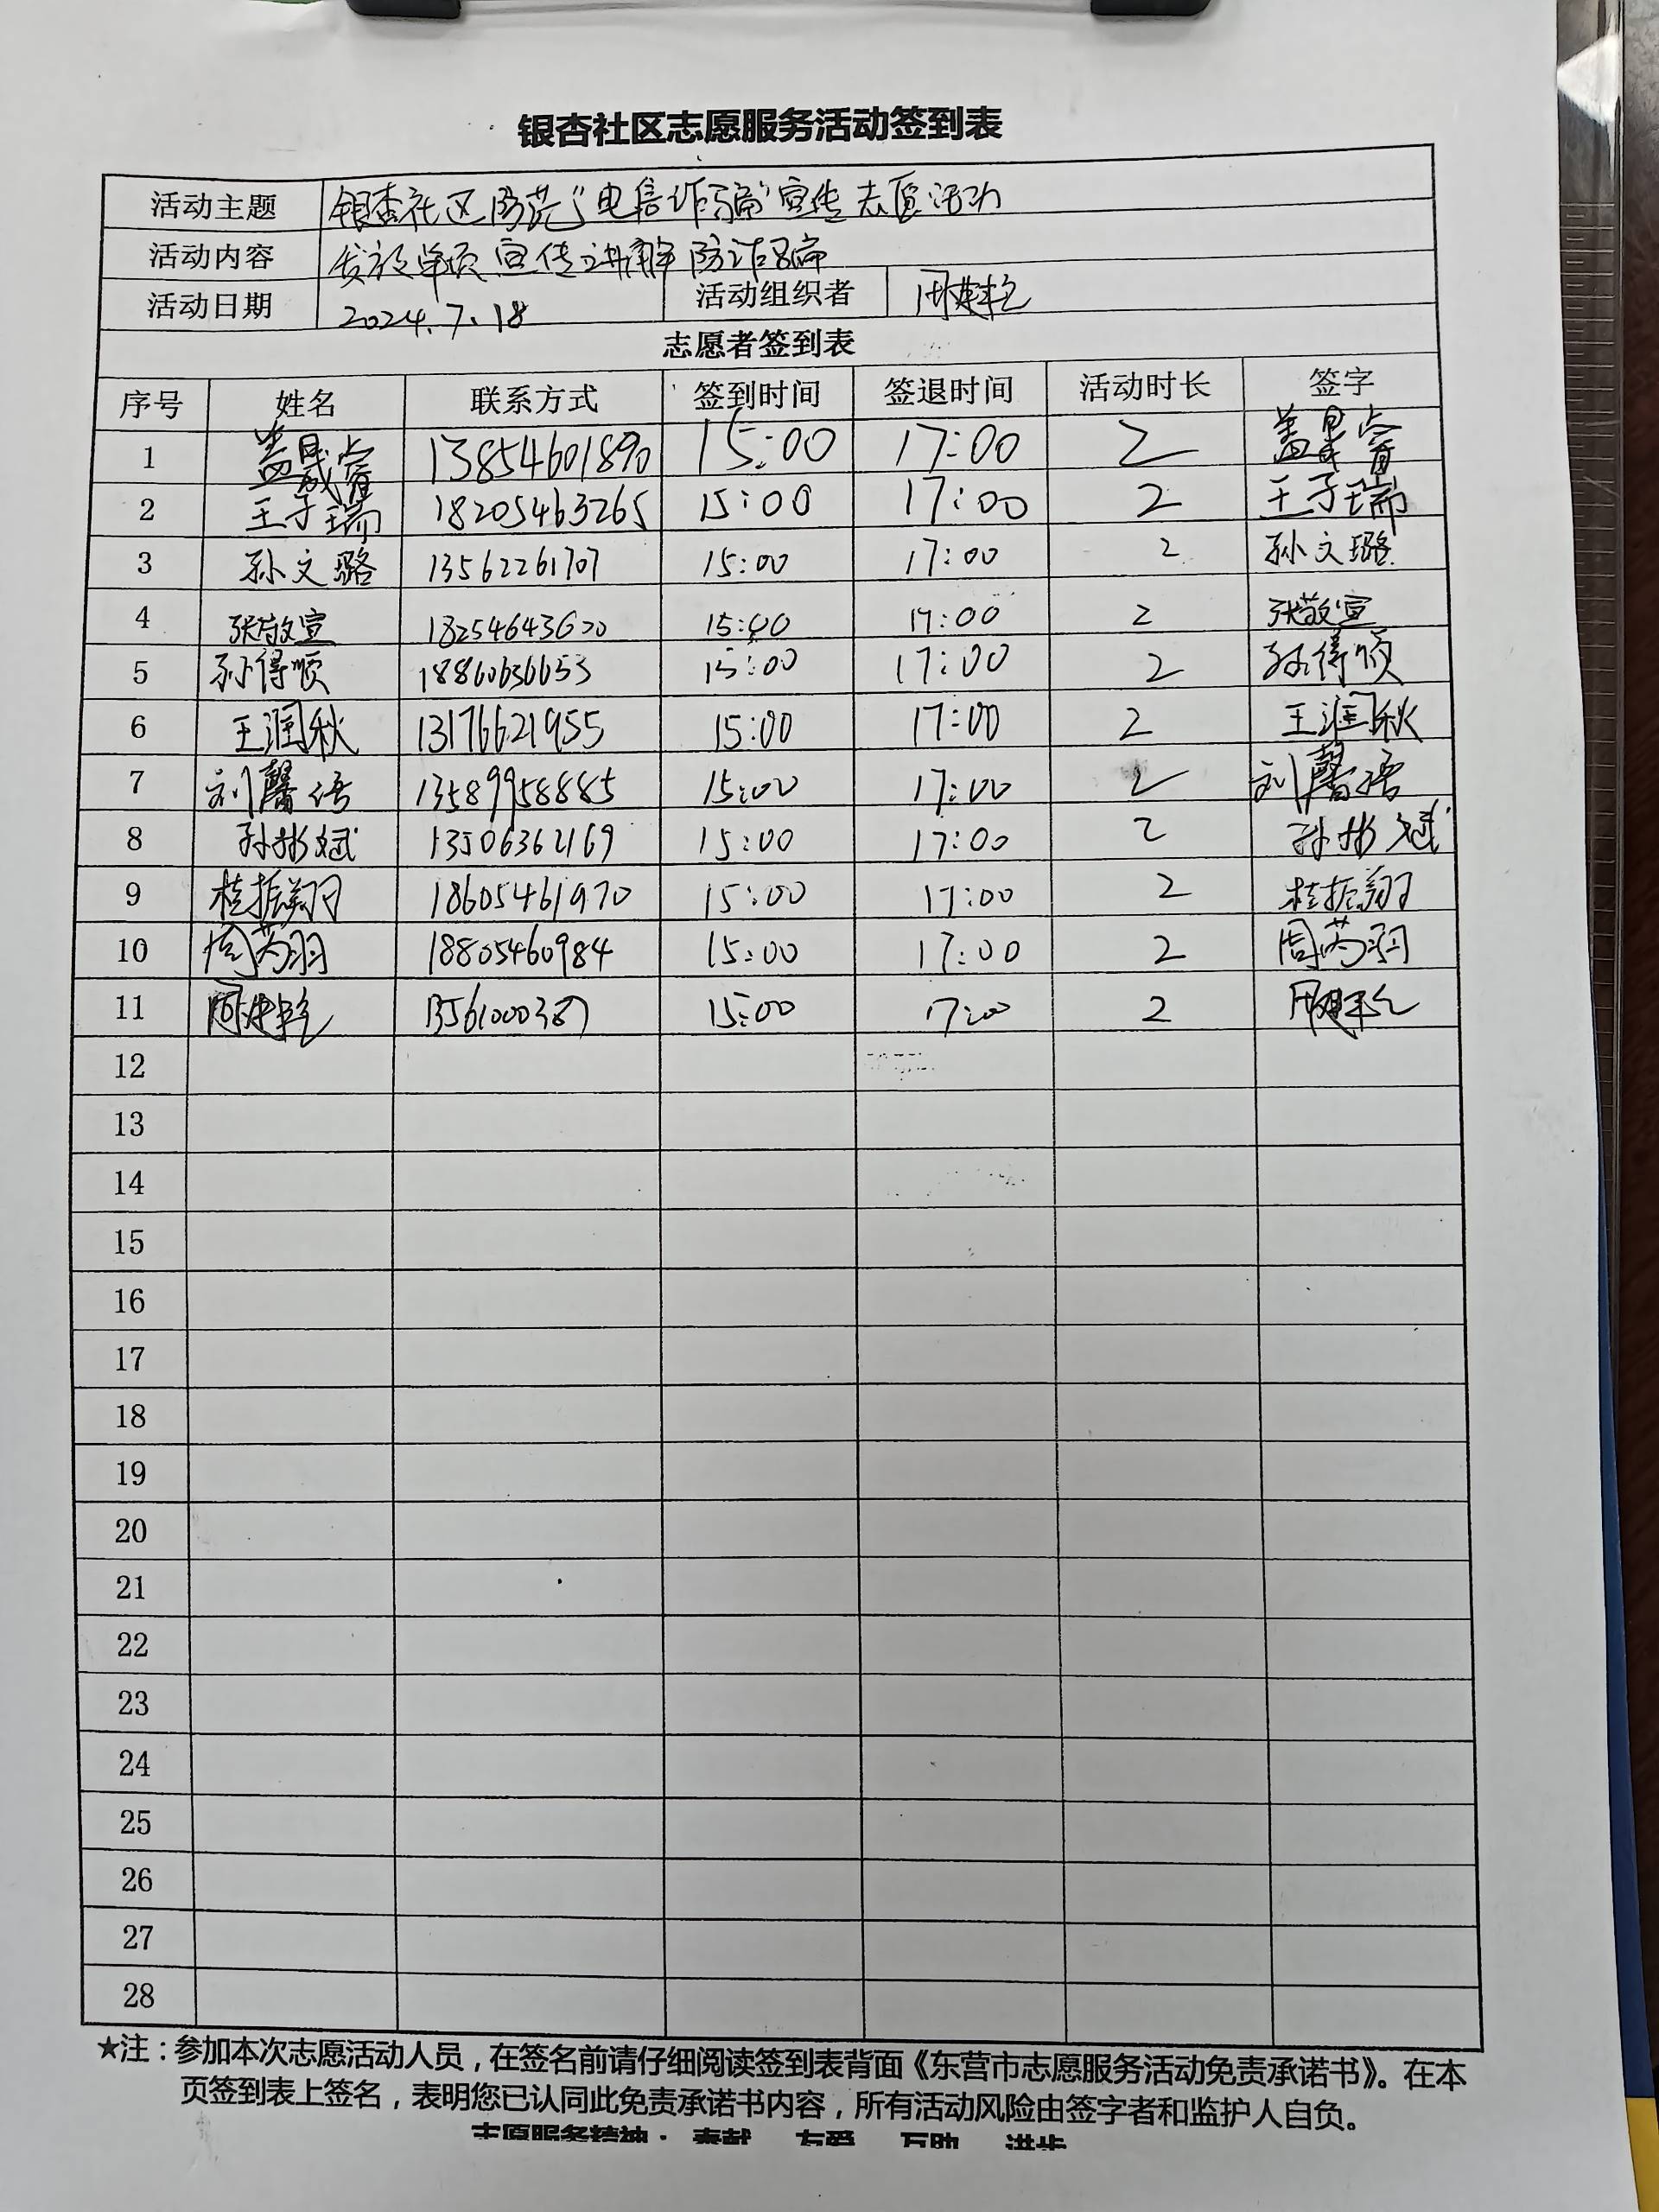 银杏社区志愿服务活动签到表
活动主题 银杏社区防范“电信诈骗”宣传志愿活动
活动内容 发放单页 宣传讲解 防诈骗
活动日期 2024.7.18 活动组织者
志愿者签到表
序号 姓名 联系方式 签到时间 签退时间 活动时长 签字
1 盖晟睿 13854601890 15:00 17:00 2 盖晟睿
2 王子瑞 18205463265 15:00 17:00 2 王子瑞
3 孙文璐 13562261707 15:00 17:00 2 孙文璐
4 张敬宣 15:00 17:00 2 张敬宣
5 孙得顺 18860636653 15:00 17:00 2 孙得顺
6 王润秋 13176621955 15:00 17:00 2 王润秋
7 刘馨语 13589958885 15:00 17:00 2 刘馨语
8 孙彬斌 13506362169 15:00 17:00 2 孙彬斌
9 桂振翔 18605461970 15:00 17:00 2 桂振翔
10 周芮羽 18805460984 15:00 17:00 2 周芮羽
11 15:00 17:00 2
12
13
14
15
16
17
18
19
20
21
22
23
24
25
26
27
28
★注：参加本次志愿活动人员，在签名前请仔细阅读签到表背面《东营市志愿服务活动免责承诺书》。在本
页签到表上签名，表明您已认同此免责承诺书内容，所有活动风险由签字者和监护人自负。
志愿服务精神：奉献 友爱 互助 进步